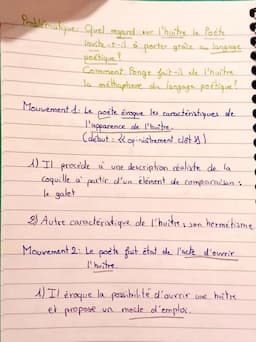 Problématique: Quel regard sur l'huître le Poète
invite-t-il à porter grâce au langage
poétique?
Comment Ponge fait-il de l'huître
la métaphore du langage poétique?
Mouvement 1: Le poète évoque les caractéristiques de
l'apparence de l'huître.
(début: «opiniâtrement clos»)
1) Il procède à une description réaliste de la
coquille à partir d'un élément de comparaison:
le galet
2) Autre caractéristique de l'huître: son hermétisme
Mouvement 2: Le poète fait état de l'acte d'ouvrir
l'huître.
1) Il évoque la possibilité d'ouvrir une huître
et propose un mode d'emploi.